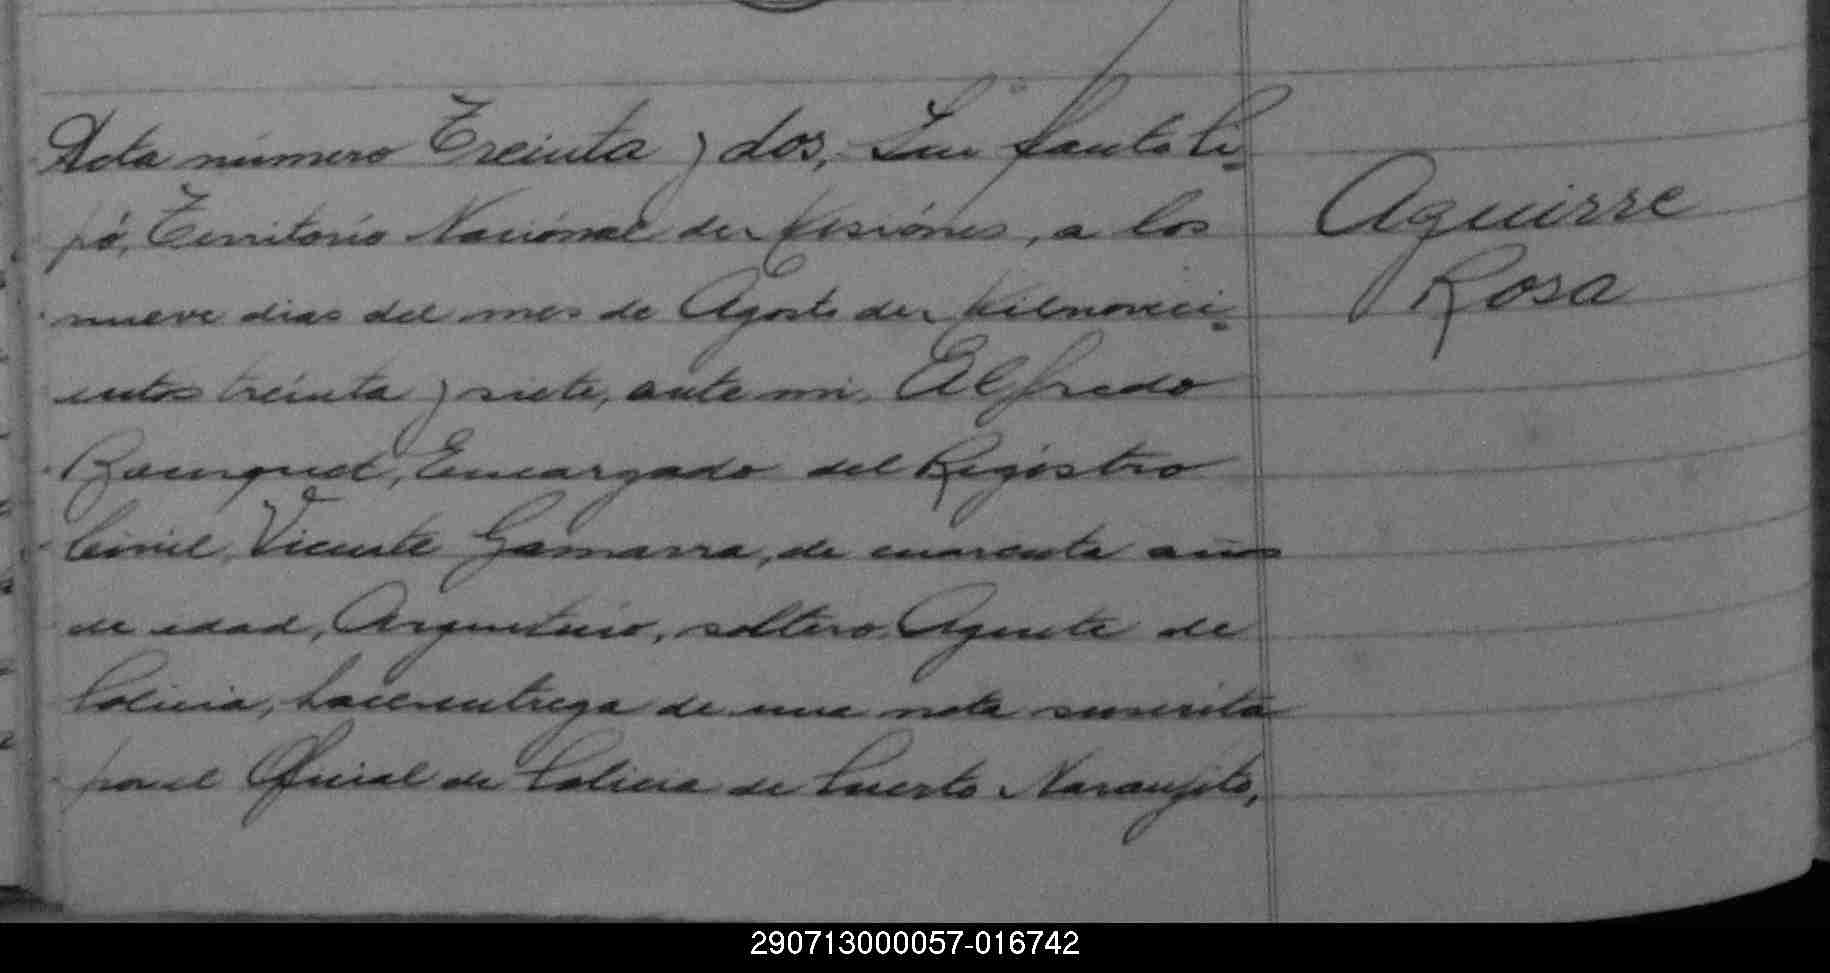 Acta número Treinta y dos, En Santo Pi-
pó, Territorio Nacional de Misiónes, a los
nueve dias del mes de Agosto de Milnoveci-
entos treinta y siete, ante mi, Alfredo
Encargado del Registro
Civil, Vicente Gamarra, de cuarenta años
de edad, Argentino, soltero Agente de
Policia, hace entrega de una nota suscrita
por el Oficial de Policia de Puerto Naranjito,
Aguirre
Rosa
290713000057-016742